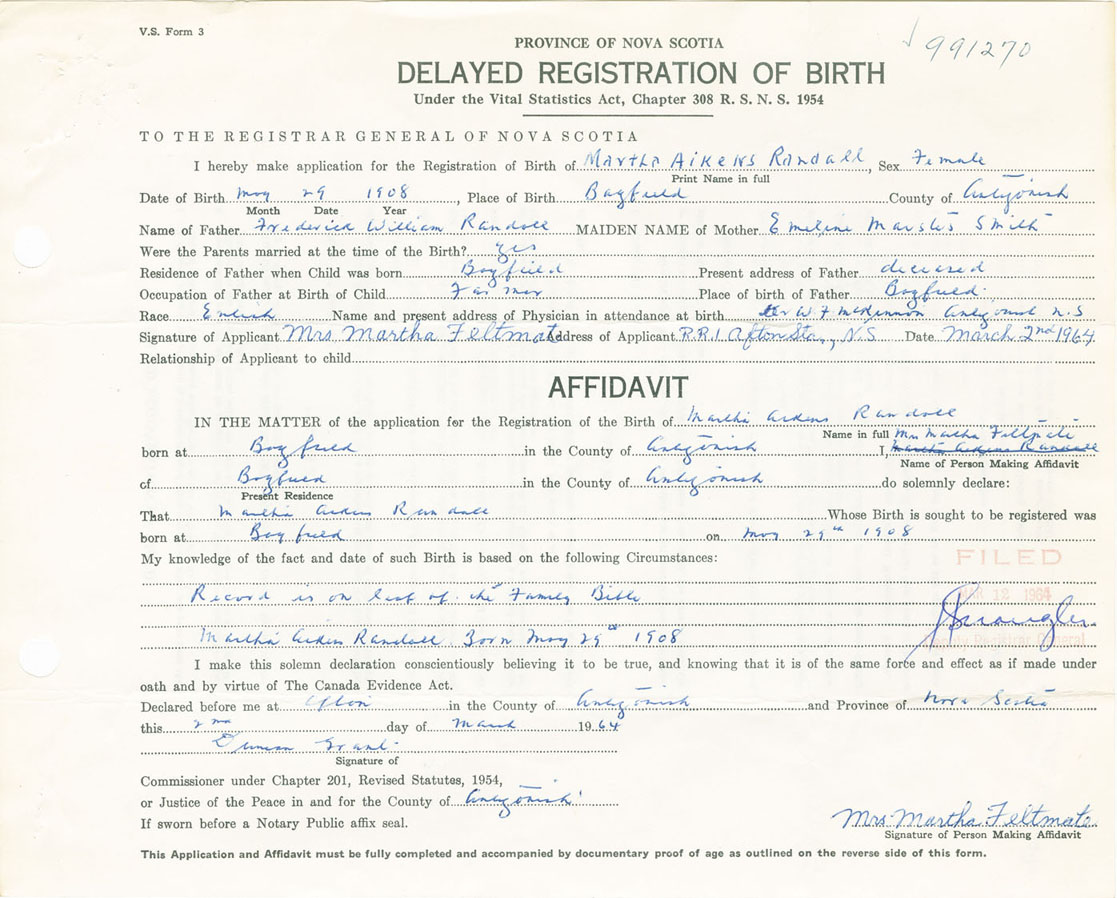 V.S. Form 3
991270
PROVINCE OF NOVA SCOTIA
DELAYED REGISTRATION OF BIRTH
Under the Vital Statistics Act, Chapter 308 R. S. N. S. 1954
TO THE REGISTRAR GENERAL OF NOVA SCOTIA
I hereby make application for the Registration of Birth of Martha Aikens Randall, Sex Female
Print Name in full
Date of Birth May 29 1908, Place of Birth Bayfield County of Antigonish
Month Date Year
Name of Father Frederick William Randall MAIDEN NAME of Mother Smith
Were the Parents married at the time of the Birth? Yes
Residence of Father when Child was born Bayfield Present address of Father deceased
Occupation of Father at Birth of Child Farmer Place of birth of Father Bayfield
Race English Name and present address of Physician in attendance at birth W F McKinnon Antigonish N.S
Signature of Applicant Mrs. Martha Feltmate Address of Applicant R.R.1. Afton Sta., N.S Date March 2nd 1964
Relationship of Applicant to child
AFFIDAVIT
IN THE MATTER of the application for the Registration of the Birth of Martha Aikens Randall
Name in full Mrs Martha Feltmate
born at Bayfield in the County of Antigonish I, Martha Aikens Randall
Name of Person Making Affidavit
of Bayfield in the County of Antigonish do solemnly declare:
Present Residence
That Martha Aikens Randall Whose Birth is sought to be registered was
born at Bayfield on May 29th 1908
My knowledge of the fact and date of such Birth is based on the following Circumstances:
FILED
Record is on leaf of the Family Bible
MAR 12 1964
Martha Aikens Randall Born May 29th 1908
Deputy Registrar General
I make this solemn declaration conscientiously believing it to be true, and knowing that it is of the same force and effect as if made under
oath and by virtue of The Canada Evidence Act.
Declared before me at Afton in the County of Antigonish and Province of Nova Scotia
this 2nd day of March 1964
Duncan Grant
Signature of
Commissioner under Chapter 201, Revised Statutes, 1954,
or Justice of the Peace in and for the County of Antigonish
If sworn before a Notary Public affix seal.
Mrs. Martha Feltmate
Signature of Person Making Affidavit
This Application and Affidavit must be fully completed and accompanied by documentary proof of age as outlined on the reverse side of this form.